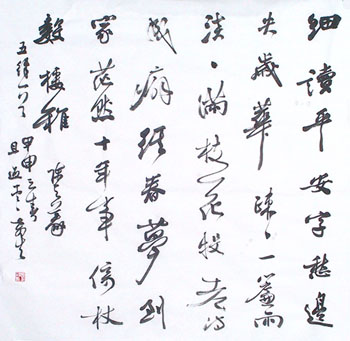 細讀平安字愁邊
失歲華疎々一簾雨
淡々滿枝花投老詩
成癖經春夢到
家茫然十年事倚杖
數棲鴉 陳與義
五律一首 甲申